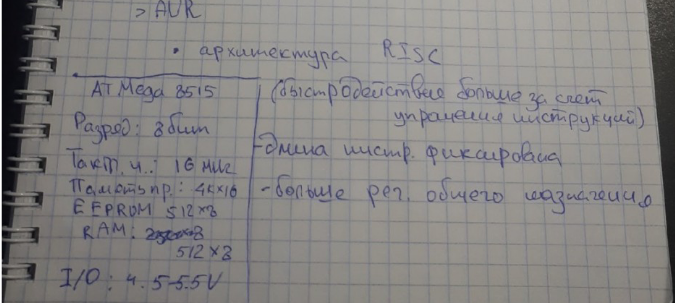 > AVR
• архитектура RISC
ATMega 8515
Разряд: 8бит
Такт. ч.: 16 мгц
Память пр.: 4к×16
EEPROM 512×8
RAM:
512×8
I/O: 4.5-5.5V
(быстродействие больше за счет
упращения инструкций)
-длина инстр. фиксирована
-больше рег. общего назначения